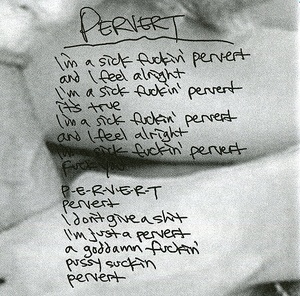 PERVERT
I'm a sick fuckin' pervert
and I feel alright
I'm a sick fuckin' pervert
it's true
I'm a sick fuckin' pervert
and I feel alright
I'm a sick fuckin' pervert
fuck you
P-E-R-V-E-R-T
pervert
I don't give a shit
I'm just a pervert
a goddamn fuckin'
pussy suckin
pervert